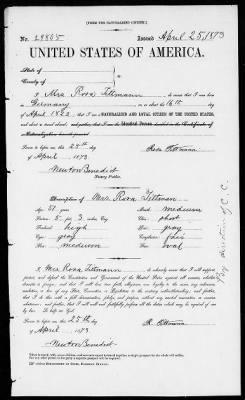 [FORM FOR NATURALIZED CITIZEN.]
No. 29805 Issued April 25, 1873
UNITED STATES OF AMERICA.
State of
County of
I, Mrs Rosa Tittmann do swear that I was born
in Germany on or about the 16th day
of April 1822; that I am a NATURALIZED AND LOYAL CITIZEN OF THE UNITED STATES,
and about to travel abroad;
Sworn to before me, this 25th day Rosa Tittmann
of April 1873
Newton Benedict
Notary Public.
Description of Mrs Rosa Tittman
Age: 51 years. Mouth: medium
Stature: 5 feet 3 inches, Eng. Chin: short
Forehead: high Hair: gray
Eyes: gray Complexion: fair
Nose: medium Face: oval
By direction of C. C.
I, Mrs Rosa Tittmann do solemnly swear that I will support, protect,
and defend the Constitution and Government of the United States against all enemies, whether
domestic or foreign; and that I will bear true faith, allegiance, and loyalty to the same, any ordinance,
resolution, or law of any State, Convention, or Legislature to the contrary notwithstanding; and further,
that I do this with a full determination, pledge, and purpose, without any mental reservation or evasion
whatsoever; and further, that I will well and faithfully perform all the duties which may be required of me
by law. So help me God.
Sworn to before me, this 25th day R. Tittmann
of April 1873
Newton Benedict